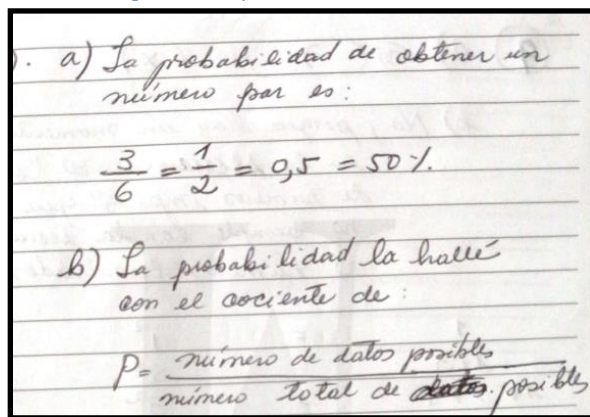 ). a) La probabilidad de obtener un
número par es:
3/6 = 1/2 = 0,5 = 50%.
b) La probabilidad la hallé
con el cociente de:
P= número de datos posibles
número total de datos. posibles